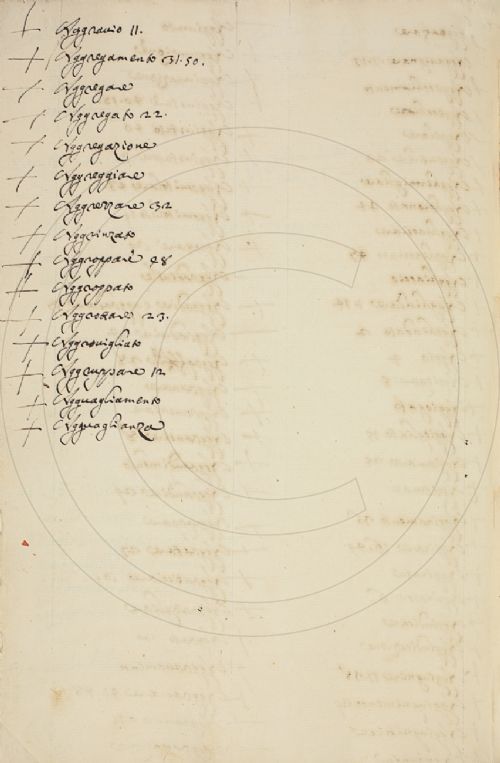 Aggravio 11.
Aggregamento 31.50.
Aggregare
Aggregato 22.
Aggregazione
Aggreggiare
Aggrezzare 32
Aggrinzato
Aggroppare 48
Aggroppato
Aggrottare 23.
Aggrovigliato
Aggruppare 12
Agguagliamento
Agguaglianza